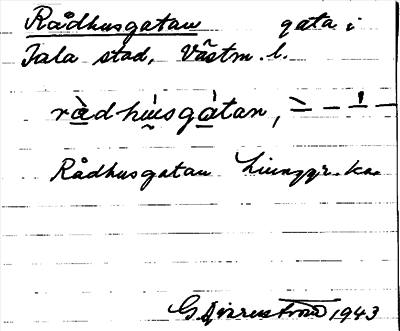 Rådhusgatan gata i
Sala stad, Västm. l.
ràdhúsgàtan,
Rådhusgatan Ljunggr. ka.
1943